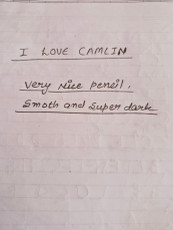 I LOVE CAMLIN
very Nice pencil.
Smoth and Super dark